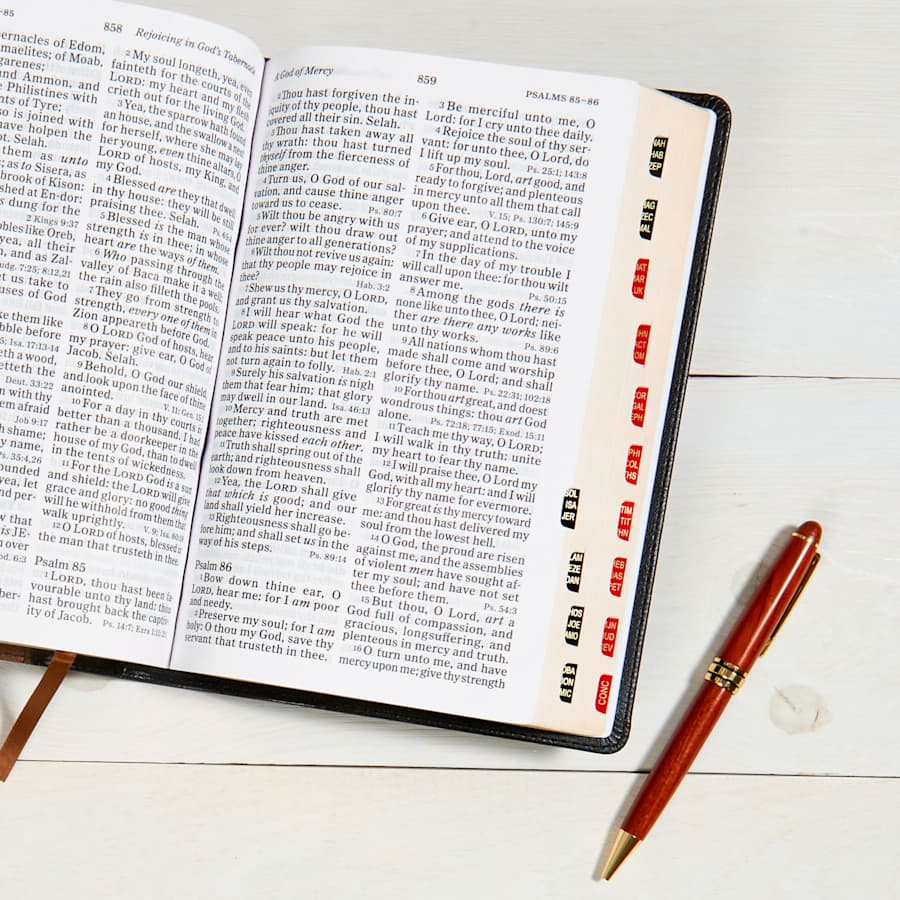 -85
858 Rejoicing in God's Tabernacle
ernacles of Edom,
maelites; of Moab,
garenes;
and Ammon, and
Philistines with
nts of Tyre;
so is joined with
have holpen the
ot. Selah.
them as unto
; as to Sisera, as
brook of Kison:
shed at En-dor:
s dung for the
2 Kings 9:37
bles like Oreb,
yea, all their
n, and as Zal-
Judg. 7:25; 8:12,21
et us take to
uses of God
ke them like
bble before
5; Isa. 17:13-14
eth a wood,
etteth the
Deut. 33:22
n with thy
em afraid
Job 9:17
h shame;
y name,
Ps. 35:4,26
ounded
yea, let
nd per-
w that
is JE-
n over
od. 6:3
2 My soul longeth, yea, even
fainteth for the courts of the
LORD: my heart and my flesh
crieth out for the living God.
3 Yea, the sparrow hath found
an house, and the swallow a nest
for herself, where she may lay
her young, even thine altars, O
LORD of hosts, my King, and
my God.
4 Blessed are they that dwell
in thy house: they will be still
praising thee. Selah.
5 Blessed is the man whose
strength is in thee; in whose
heart are the ways of them.
6 Who passing through the
valley of Baca make it a well;
the rain also filleth the pools.
7 They go from strength to
strength, every one of them in
Zion appeareth before God.
8 O LORD God of hosts, hear
my prayer: give ear, O God of
Jacob. Selah.
9 Behold, O God our shield,
and look upon the face of thine
anointed.
10 For a day in thy courts is
better than a thousand. I had
rather be a doorkeeper in the
house of my God, than to dwell
in the tents of wickedness.
11 For the LORD God is a sun
and shield: the LORD will give
grace and glory: no good thing
will he withhold from them that
walk uprightly.
12 O LORD of hosts, blessed is
the man that trusteth in thee.
Psalm 85
1 LORD, thou hast been fa-
vourable unto thy land: thou
hast brought back the captiv-
ity of Jacob. Ps. 14:7; Ezra 1:11; 2:1
A God of Mercy 859 PSALMS 85-86
2 Thou hast forgiven the in-
iquity of thy people, thou hast
covered all their sin. Selah.
3 Thou hast taken away all
thy wrath: thou hast turned
thyself from the fierceness of
thine anger.
4 Turn us, O God of our sal-
vation, and cause thine anger
toward us to cease. Ps. 80:7
5 Wilt thou be angry with us
for ever? wilt thou draw out
thine anger to all generations?
6 Wilt thou not revive us again:
that thy people may rejoice in
thee? Hab. 3:2
7 Shew us thy mercy, O LORD,
and grant us thy salvation.
8 I will hear what God the
LORD will speak: for he will
speak peace unto his people,
and to his saints: but let them
not turn again to folly. Hab. 2:1
9 Surely his salvation is nigh
them that fear him; that glory
may dwell in our land. Isa. 46:13
10 Mercy and truth are met
together; righteousness and
peace have kissed each other.
11 Truth shall spring out of the
earth; and righteousness shall
look down from heaven.
12 Yea, the LORD shall give
that which is good; and our
land shall yield her increase.
13 Righteousness shall go be-
fore him; and shall set us in the
way of his steps. Ps. 89:14
Psalm 86
1 Bow down thine ear, O
LORD, hear me: for I am poor
and needy.
2 Preserve my soul; for I am
holy: O thou my God, save thy
servant that trusteth in thee.
3 Be merciful unto me, O
Lord: for I cry unto thee daily.
4 Rejoice the soul of thy ser-
vant: for unto thee, O Lord, do
I lift up my soul. Ps. 25:1; 143:8
5 For thou, Lord, art good, and
ready to forgive; and plenteous
in mercy unto all them that call
upon thee. V. 15; Ps. 130:7; 145:9
6 Give ear, O LORD, unto my
prayer; and attend to the voice
of my supplications.
7 In the day of my trouble I
will call upon thee: for thou wilt
answer me. Ps. 50:15
8 Among the gods there is
none like unto thee, O Lord; nei-
ther are there any works like
unto thy works. Ps. 89:6
9 All nations whom thou hast
made shall come and worship
before thee, O Lord; and shall
glorify thy name. Ps. 22:31; 102:18
10 For thou art great, and doest
wondrous things: thou art God
alone. Ps. 72:18; 77:15; Exod. 15:11
11 Teach me thy way, O LORD;
I will walk in thy truth: unite
my heart to fear thy name.
12 I will praise thee, O Lord my
God, with all my heart: and I will
glorify thy name for evermore.
13 For great is thy mercy toward
me: and thou hast delivered my
soul from the lowest hell.
14 O God, the proud are risen
against me, and the assemblies
of violent men have sought af-
ter my soul; and have not set
thee before them. Ps. 54:3
15 But thou, O Lord, art a
God full of compassion, and
gracious, longsuffering, and
plenteous in mercy and truth.
16 O turn unto me, and have
mercy upon me; give thy strength
SOL
ISA
JER
AN
EZE
DAN
HOS
JOE
AMO
OBA
ION
MIC
NAH
HAB
ZEP
AG
ZEC
MAL
MAT
MAR
LUK
HN
ACT
OM
COR
GAL
EPH
PHI
COL
THS
TIM
TIT
HN
HEB
JAS
PET
JN
JUD
REV
CONC